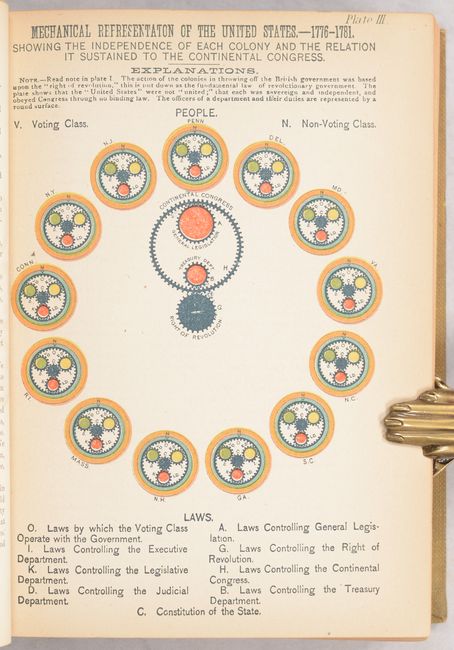 Plate III.
MECHANICAL REPRESENTATON OF THE UNITED STATES.—1776-1781.
SHOWING THE INDEPENDENCE OF EACH COLONY AND THE RELATION
IT SUSTAINED TO THE CONTINENTAL CONGRESS.
EXPLANATIONS.
NOTE.—Read note in plate I. The action of the colonies in throwing off the British government was based
upon the "right of revolution," this is put down as the fundamental law of revolutionary government. The
plate shows that the "United States" were not "united;" that each was sovereign and independent, and
obeyed Congress through no binding law. The officers of a department and their duties are represented by a
round surface.
PEOPLE.
V. Voting Class.
N. Non-Voting Class.
PENN
N.J.
DEL.
N.Y.
MD.
CONN
VA.
R.I.
N.C.
MASS
S.C.
N.H.
GA.
CONTINENTAL CONGRESS
GENERAL LEGISLATION
TREASURY DEPT.
H
B
G
RIGHT OF REVOLUTION
LAWS.
O. Laws by which the Voting Class
Operate with the Government.
I. Laws Controlling the Executive
Department.
K. Laws Controlling the Legislative
Department.
D. Laws Controlling the Judicial
Department.
A. Laws Controlling General Legis-
lation.
G. Laws Controlling the Right of
Revolution.
H. Laws Controlling the Continental
Congress.
B. Laws Controlling the Treasury
Department.
C. Constitution of the State.